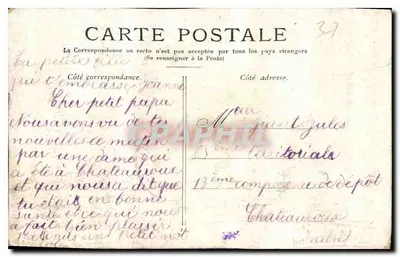 CARTE POSTALE
37
La Correspondance au recto n'est pas acceptée par tous les pays étrangers
(Se renseigner à la Poste)
La petite
qui t'embrasse Jeanne
Côté correspondance.
Côté adresse.
Cher petit papa
Nous avons vu de tes
nouvelles ce matin
par une dame qui
a été à Chateauroux
et qui nous a dit que
tu étais en bonne
santé et ce qui nous
a fait bien plaisir
petit mot
Jules
territoriale
13ème compagnie de dépôt
Chateauroux
Indre